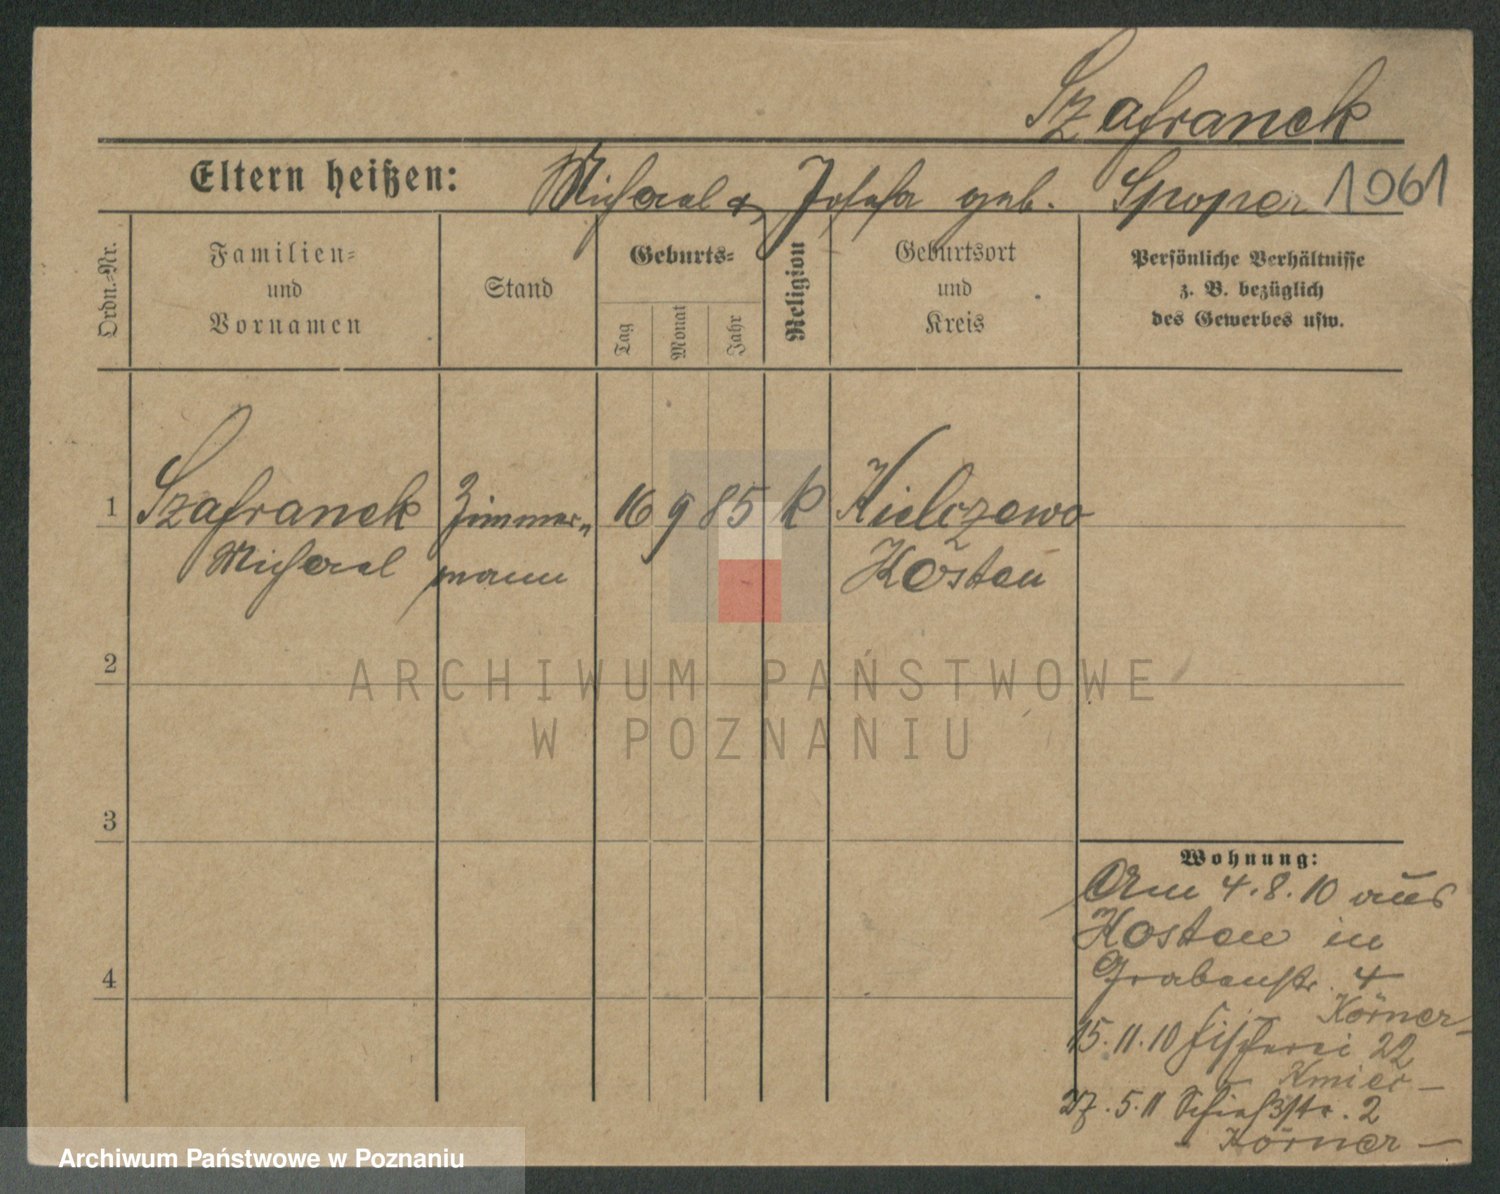 Szafranek
Eltern heißen: Michael & Josefa geb. Spoper 1961
Ordn.-Nr.
Familien-
und
Vornamen
Stand
Geburts-
Tag
Monat
Jahr
Religion
Geburtsort
und
Kreis
Persönliche Verhältnisse
z. B. bezüglich
des Gewerbes usw.
1 Szafranek Zimmer- 16 9 85 k Kielczewo
Michael mann Kosten
2
ARCHIWUM PAŃSTWOWE
W POZNANIU
3
Wohnung:
Am 4.8.10 aus
Kosten in
4 Grabenstr. 4
Körner-
15.11.10 Fischerei 22
Kmiec-
27.5.11 Schießstr. 2
- Körner -
Archiwum Państwowe w Poznaniu